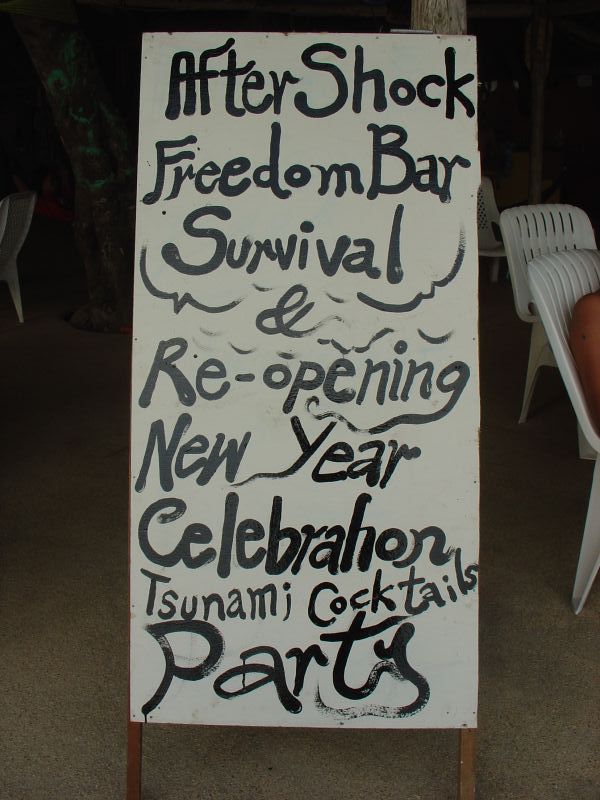 After Shock
Freedom Bar
Survival
&
Re-opening
New Year
Celebration
Tsunami Cocktails
Party